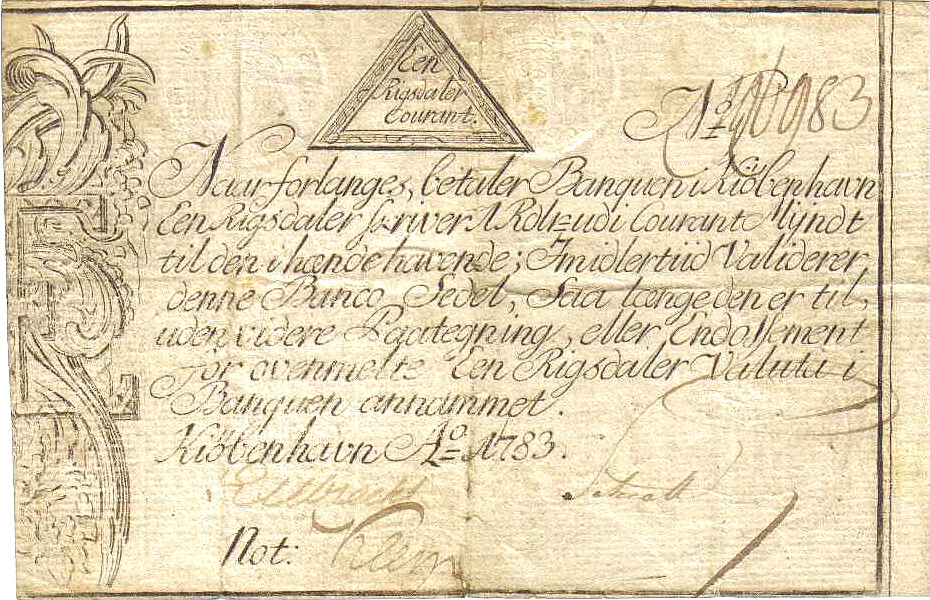 Een
Rigsdaler
Courant.
No 983
Naar forlanges, betaler Banquen i Kiöbenhavn
Een Rigsdaler skriver 1 Rdlr udi Courant Myndt
til den i hænde havende; Imidlertiid Validerer
denne Banco Sedel, Saa længe den er til,
uden videre Paategning, eller Endossement
for ovenmelte Een Rigsdaler Valuta i
Banquen annammet.
Kiöbenhavn Ao 1783.
Not: